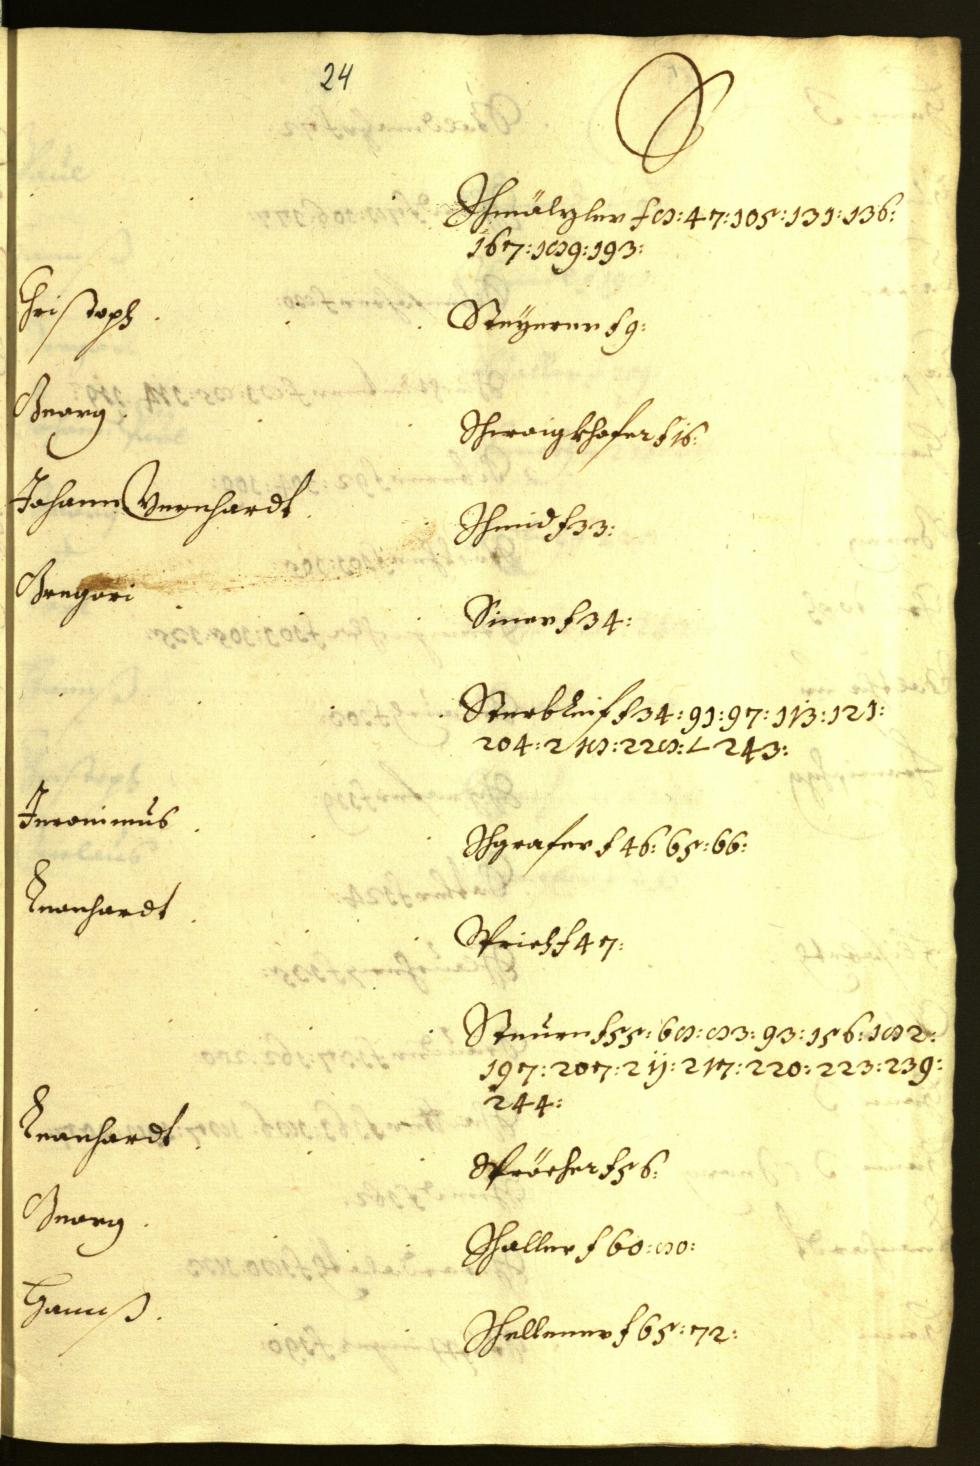 24
S
Schmälzler f 8: 47: 105: 131: 136:
167: 189: 193:
Christoph . Steyerer f 9:
Georg . Schwaigkhofer f 16:
Johann Bernhardt . Schmid f 33:
Gregori . Siner f 34:
Sterbkleif f 34: 91: 97: 113: 121:
204: 218: 228: 243:
Jeronimus . Schgrafer f 46: 65: 66:
Leonhardt . f 47:
Steurn f 55: 68: 83: 93: 156: 182:
197: 207: 211: 217: 220: 223: 239:
244:
Leonhardt . Spröcher f 56:
Georg . Schaller f 60: 80:
Hannß . Schellener f 65: 72: